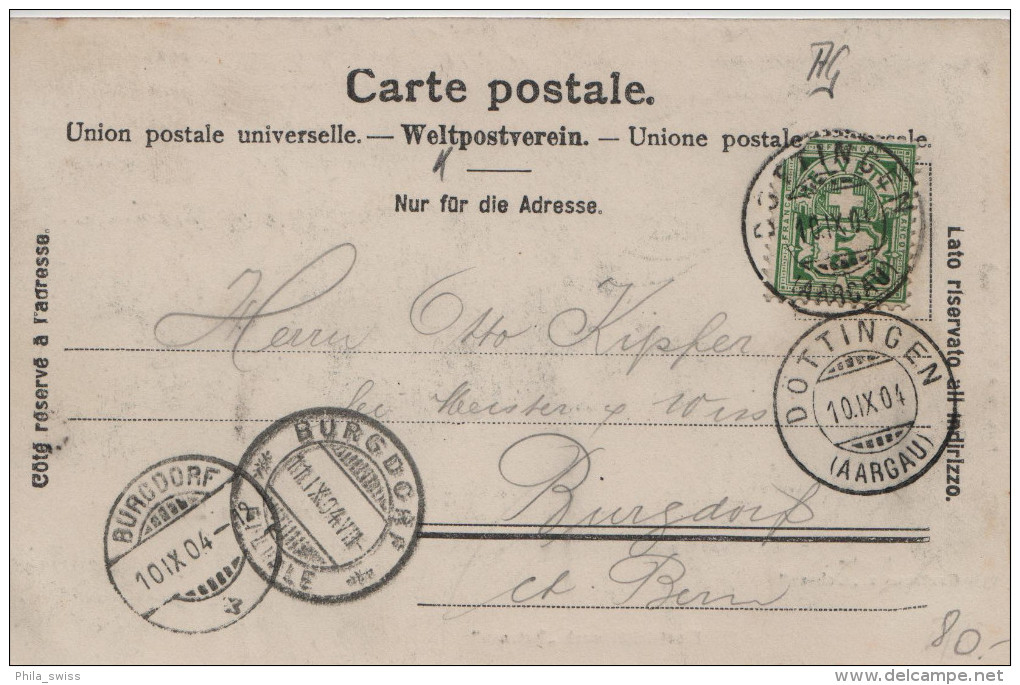 AG
Carte postale.
Union postale universelle. — Weltpostverein. — Unione postale universale.
Nur für die Adresse.
Côté réservé à l'adresse.
Lato riservato all'indirizzo.
HELVETIA
FRANCO
FRANCO
5
DÖTTINGEN
10.IX.04
(AARGAU)
DÖTTINGEN
10.IX.04
(AARGAU)
Herrn Otto Kipfer
bei Meister & Wiss
Burgdorf
ct. Bern
BURGDORF
11.IX.04.VII-
FILIALE
BURGDORF
10 IX 04
80.-
Phila_swiss
www.delcampe.net